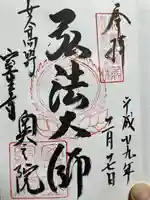 奉拝
平成廿九年
二月廿七日
弘法大師
奥之院
女人高野
室生寺